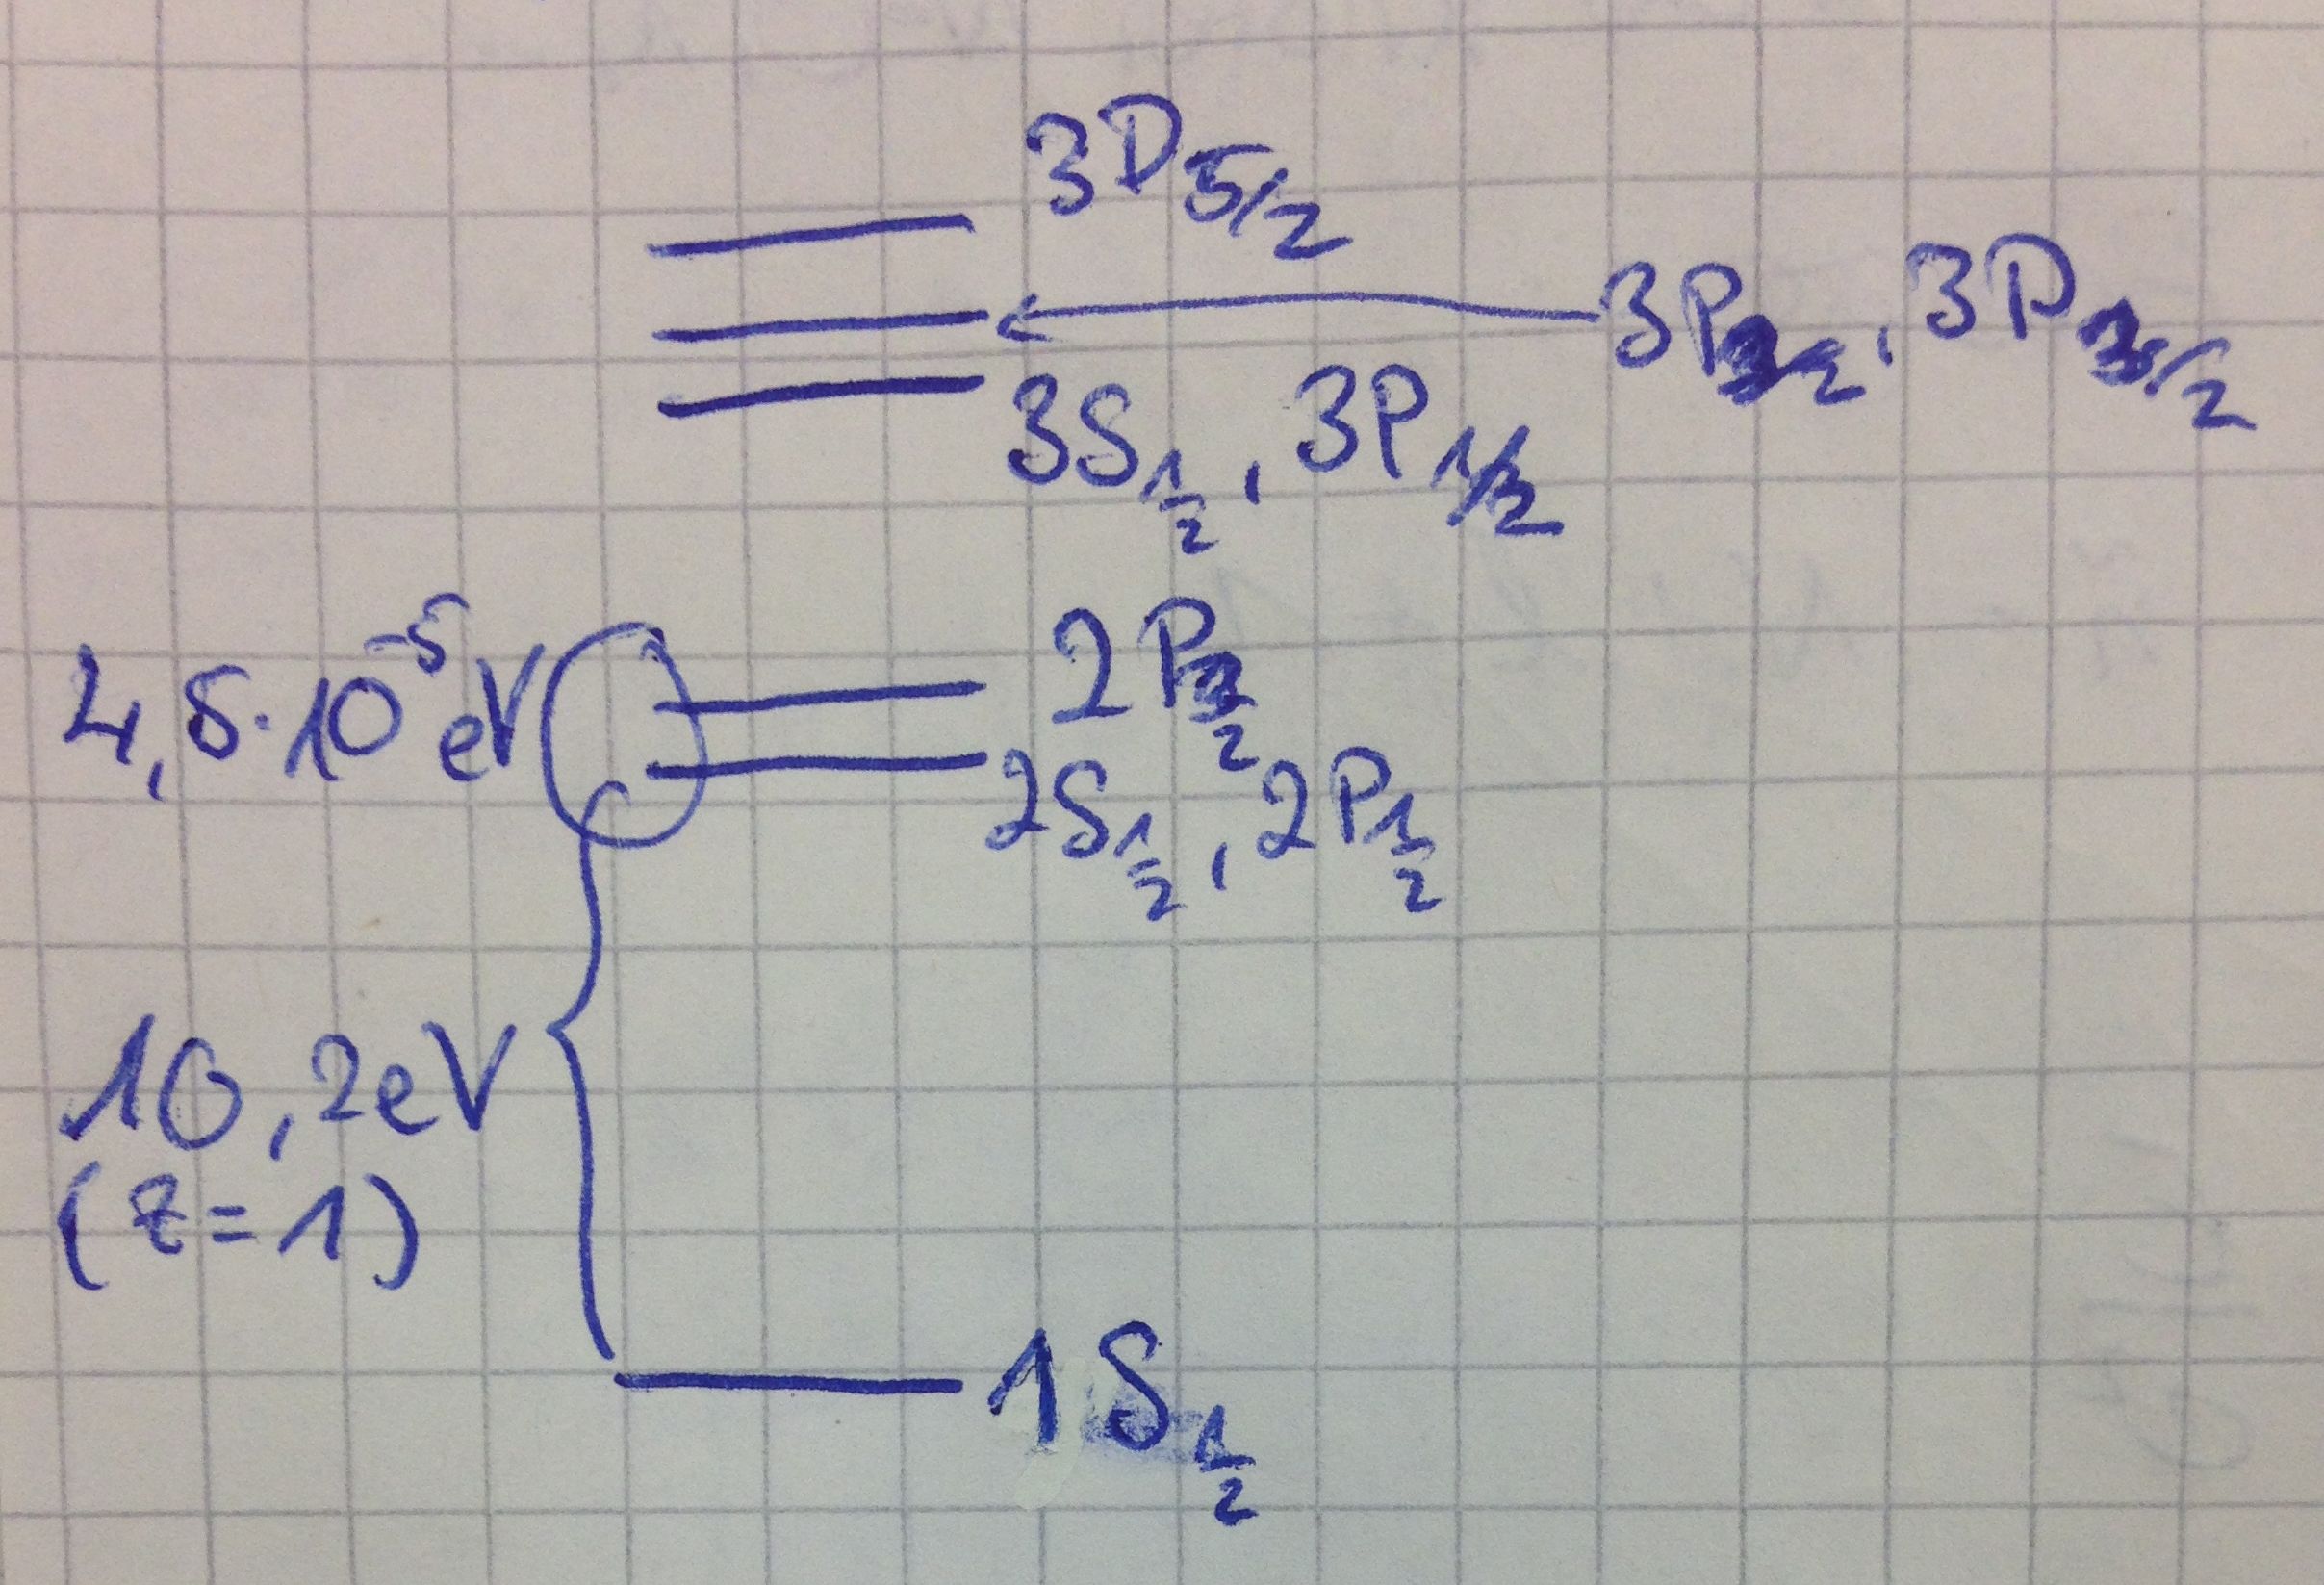 3D5/2
3P3/2, 3D3/2
3S1/2, 3P1/2
4,5·10^-5 eV
2P3/2
2S1/2, 2P1/2
10,2eV
(z=1)
1S1/2